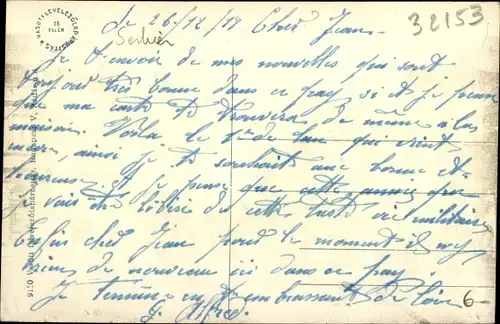 le 26/12/19 Cher Jean
32153
Serbien
Je t'envoie de mes nouvelles qui sont
toujours très bonne dans ce pay si et je pense
que ma carte te trouvera de même à la
maison. Voila le 1er de l'an qui vient
ainsi je te souhaite une bonne et
heureuse. et je pense que cette année que
je vais être libéré de cette triste vie militaire
cher Jean pour le moment il n'y
rien de nouveau ici dans ce pay.
Je termine en t'embrassant de loin
G. Alfred.
6-
VASUTI LEVELEZŐLAP ÁRUSITÁS
15
FILLÉR
9150